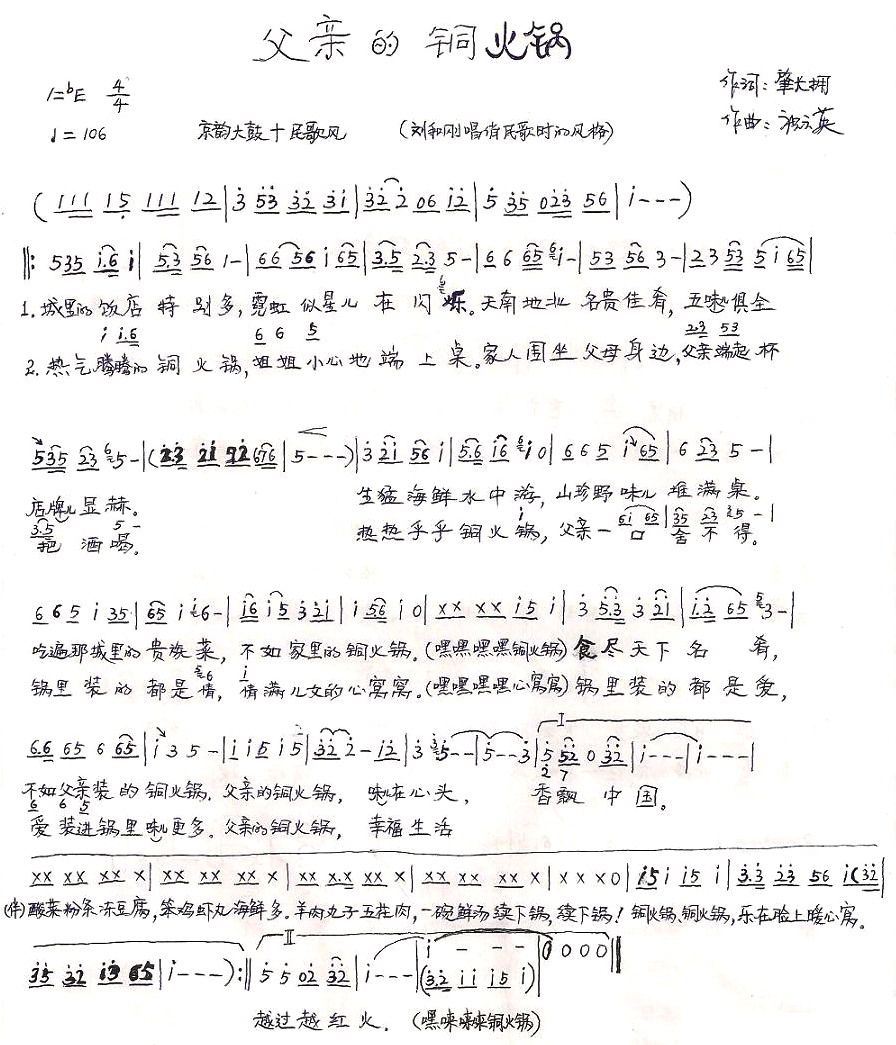 父亲的铜火锅
1=ᵇE 4/4
作词：肇大拥
♩=106 京韵大鼓十民歌风 (刘和刚唱俏民歌时的风格)
作曲：英
( 111 15 111 12 | 3 53 32 31 | 32 2 06 12 | 5 35 023 56 | i - - - )
‖: 535 i.6 i | 53 56 1- | 66 56 i 65 | 3.5 2.3 5- | 6 6 65 i- | 53 56 3- | 23 53 5 i 65 |
1.城里的饭店特别多,霓虹似星儿在闪烁。天南地北名贵佳肴,五味儿俱全
i i.6 6 6 5 23 53
2.热气腾腾的铜火锅,姐姐小心地端上桌。家人围坐父母身边,父亲端起杯
535 23 5- | (2.3 21 72 676 | 5 - - - ) | 3 21 56 i | 5.6 i6 i 0 | 6 6 5 i 65 | 6 23 5 - |
店牌儿显赫。 生猛海鲜水中游,山珍野味儿堆满桌。
3.5 5 - i 6i 65 | 35 23 5 - |
把酒喝。 热热乎乎铜火锅,父亲一口舍不得。
6 6 5 i 35 | 65 i 6- | i6 i 5 321 | i 56 i 0 | xx xx i5 i | 3 5.3 3 21 | i.2 65 3- |
吃遍那城里的贵族菜,不如家里的铜火锅.(嘿嘿嘿嘿铜火锅)食尽天下名肴,
锅里装的都是情,情满儿女的心窝窝.(嘿嘿嘿嘿心窝窝)锅里装的都是爱,
6.6 65 6 65 | i 3 5 - | i i5 i 5 | 32 2 - 12 | 3 5 - - | 5 - - 3 | I 5 52 0 32 | i - - - | i - - - |
2 7
不如父亲装的铜火锅.父亲的铜火锅,味儿在心头, 香飘中国。
6 6 5
爱装进锅里味儿更多.父亲的铜火锅,幸福生活
xx xx xx x | xx xx xx x | xx x.x xx x | xx xx xx x | x x x 0 | i5 i i5 i | 3.3 23 56 i( 32 |
(伴)酸菜粉条冻豆腐,笨鸡虾丸海鲜多.羊肉丸子五花肉,一碗鲜汤续下锅,续下锅!铜火锅、铜火锅,乐在脸上暖心窝。
35 32 i3 65 | i - - - ) :‖ II 5 5 02 32 | i - - - | i - - - | 0 0 0 0 ‖
(3.2 i i i5 i)
越过越红火.(嘿铜火锅)